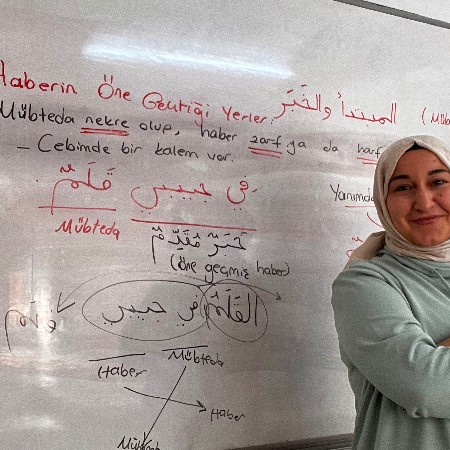 Haberin Öne Geçtiği Yerler: المبتدأ والخَبَر (Müb
Mübteda nekre olup, haber zarf ya da harf
- Cebimde bir kalem var.
فِي جيبي قَلَمٌ
Yanımda
Mübteda
خَبَرٌ مُقَدَّمٌ
(öne geçmiş haber)
القَلَمُ في جيبي
Haber Mübteda
Haber